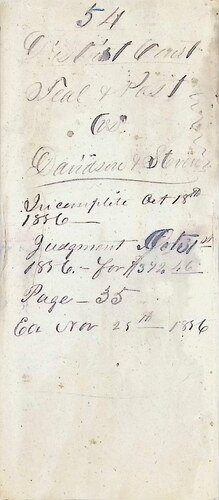 54
District Court
Teal & Post
vs.
Davidson & Stevens
Incomplete Oct 18th
1856 —
Judgment Oct 31st
1856. — for $392.46
Page — 35
Ex Nov 25th — 1856